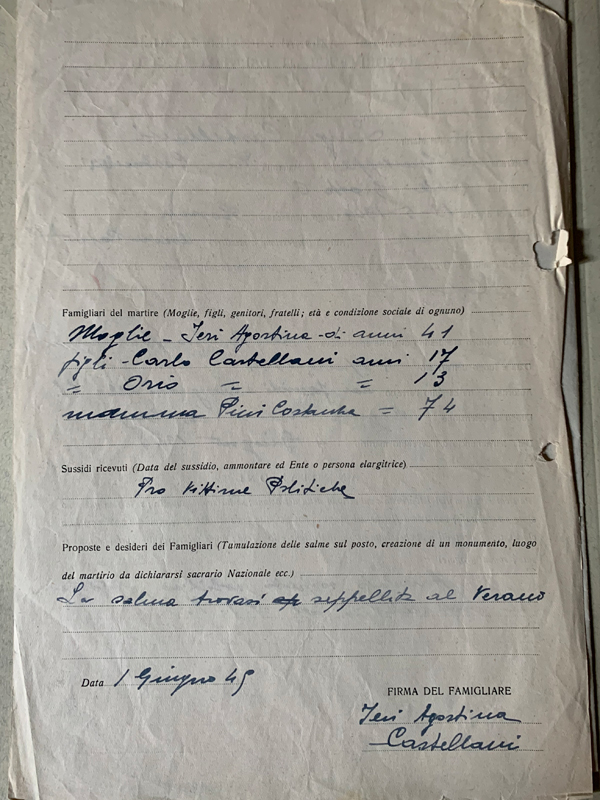 Famigliari del martire (Moglie, figli, genitori, fratelli; età e condizione sociale di ognuno)
Moglie - Ieri Agostina di anni 41
figli - Carlo Castellani anni 17
= Orio = = 13
mamma Pini Costanza = 74
Sussidi ricevuti (Data del sussidio, ammontare ed Ente o persona elargitrice)
Pro Vittime Politiche
Proposte e desideri dei Famigliari (Tumulazione delle salme sul posto, creazione di un monumento, luogo
del martirio da dichiararsi sacrario Nazionale ecc.)
La salma trovasi seppellita al Verano
Data 1 Giugno 45
FIRMA DEL FAMIGLIARE
Ieri Agostina
Castellani